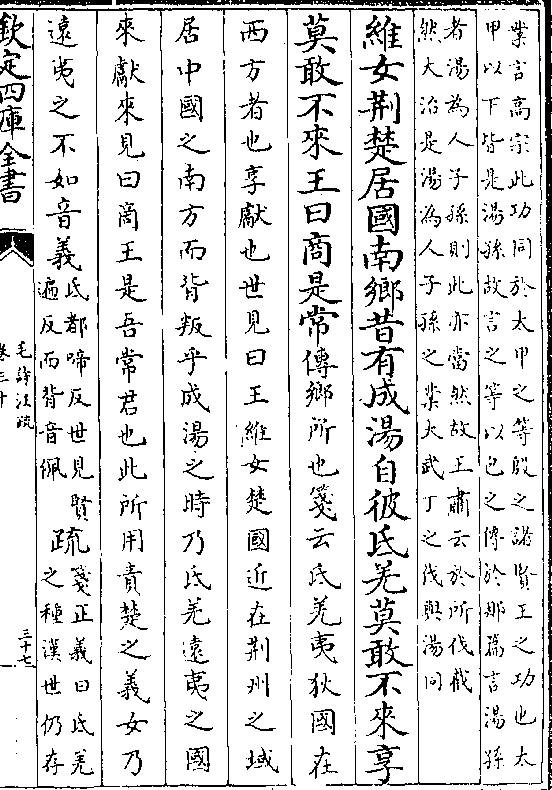 業言高宗此功同於太甲之等殷之諸賢王之功也太
甲以下皆是湯孫故言之等以包之傳於那篇言湯孫
者湯為人子孫則此亦當然故王肅云於所伐截
然大治是湯為人子孫之業大武丁之伐與湯同
維女荆楚居國南鄉昔有成湯自彼氐羌莫敢不來享
莫敢不來王曰商是常傳鄉所也箋云氐羌夷狄國在
西方者也享獻也世見曰王維女楚國近在荆州之域
居中國之南方而背叛乎成湯之時乃氐羌遠夷之國
來獻來見曰商王是吾常君也此所用責楚之義女乃
遠夷之不如音義氐都啼反世見賢
遍反而背音佩
疏箋正義曰氐羌
之種漢世仍存
欽定四庫全書
毛詩注疏
卷三十
三十七